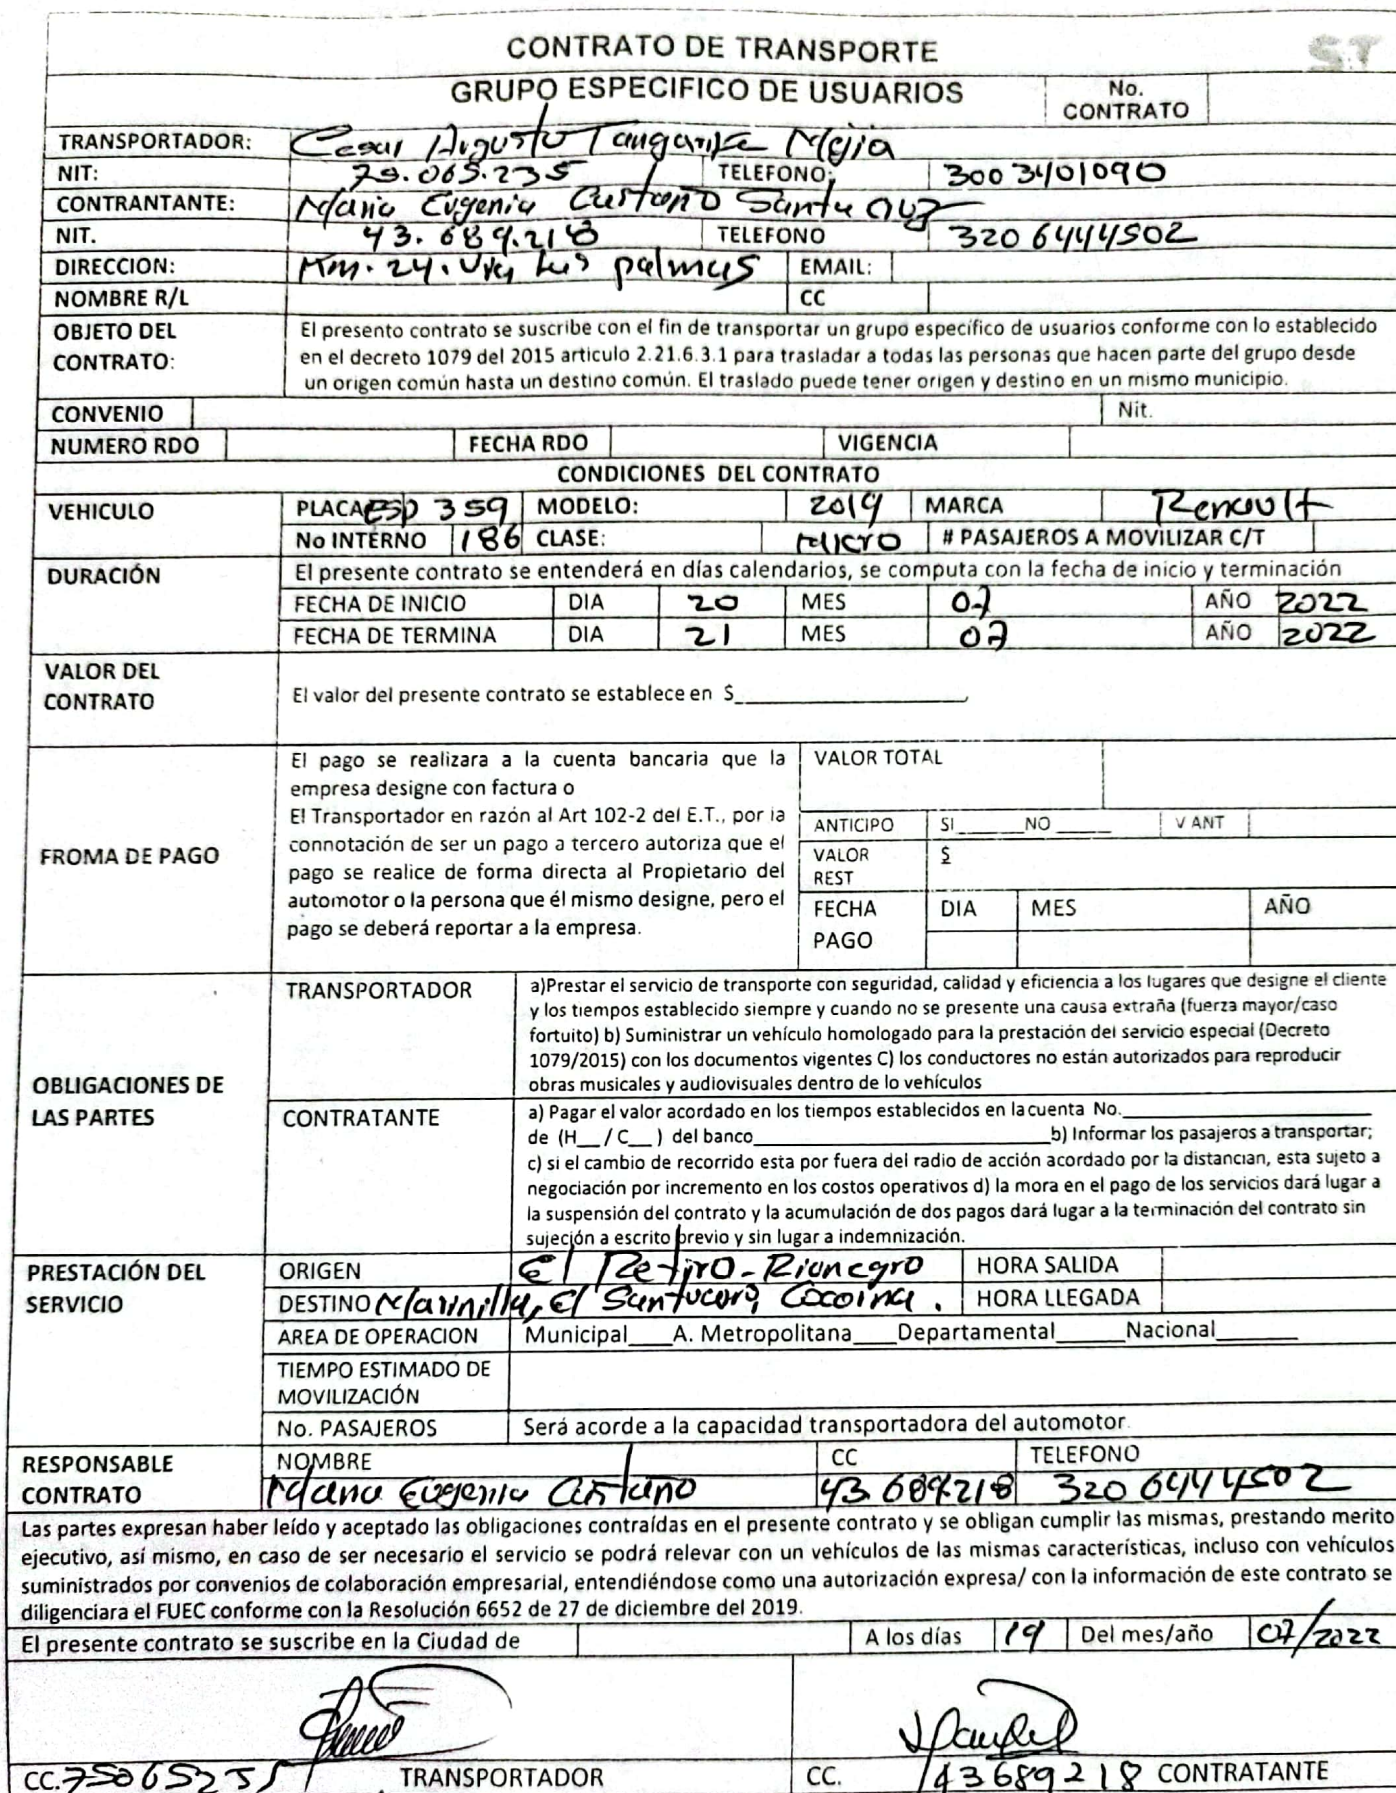 CONTRATO DE TRANSPORTE
S.T
GRUPO ESPECIFICO DE USUARIOS
No. CONTRATO
TRANSPORTADOR: Cesar Augusto Tangarife Mejia
NIT: 75.065.235 TELEFONO: 3003401090
CONTRANTANTE: Maria Eugenia Castaño Santa
NIT. 43.689.218 TELEFONO 3206444502
DIRECCION: Km. 24. Via Las palmas EMAIL:
NOMBRE R/L CC
OBJETO DEL CONTRATO: El presento contrato se suscribe con el fin de transportar un grupo específico de usuarios conforme con lo establecido
en el decreto 1079 del 2015 articulo 2.21.6.3.1 para trasladar a todas las personas que hacen parte del grupo desde
un origen común hasta un destino común. El traslado puede tener origen y destino en un mismo municipio.
CONVENIO Nit.
NUMERO RDO FECHA RDO VIGENCIA
CONDICIONES DEL CONTRATO
VEHICULO PLACA ESP 359 MODELO: 2019 MARCA Renault
No INTERNO 186 CLASE: Micro # PASAJEROS A MOVILIZAR C/T
DURACIÓN El presente contrato se entenderá en días calendarios, se computa con la fecha de inicio y terminación
FECHA DE INICIO DIA 20 MES 07 AÑO 2022
FECHA DE TERMINA DIA 21 MES 07 AÑO 2022
VALOR DEL CONTRATO El valor del presente contrato se establece en $_______________
FROMA DE PAGO
El pago se realizara a la cuenta bancaria que la
empresa designe con factura o
El Transportador en razón al Art 102-2 del E.T., por la
connotación de ser un pago a tercero autoriza que el
pago se realice de forma directa al Propietario del
automotor o la persona que él mismo designe, pero el
pago se deberá reportar a la empresa.
VALOR TOTAL
ANTICIPO SI ____ NO ____ V ANT
VALOR REST $
FECHA PAGO DIA MES AÑO
OBLIGACIONES DE LAS PARTES
TRANSPORTADOR
a)Prestar el servicio de transporte con seguridad, calidad y eficiencia a los lugares que designe el cliente
y los tiempos establecido siempre y cuando no se presente una causa extraña (fuerza mayor/caso
fortuito) b) Suministrar un vehículo homologado para la prestación del servicio especial (Decreto
1079/2015) con los documentos vigentes C) los conductores no están autorizados para reproducir
obras musicales y audiovisuales dentro de lo vehículos
CONTRATANTE
a) Pagar el valor acordado en los tiempos establecidos en la cuenta No.____________
de (H__ / C__ ) del banco____________b) Informar los pasajeros a transportar;
c) si el cambio de recorrido esta por fuera del radio de acción acordado por la distancian, esta sujeto a
negociación por incremento en los costos operativos d) la mora en el pago de los servicios dará lugar a
la suspensión del contrato y la acumulación de dos pagos dará lugar a la terminación del contrato sin
sujeción a escrito previo y sin lugar a indemnización.
PRESTACIÓN DEL SERVICIO
ORIGEN El Retiro - Rionegro HORA SALIDA
DESTINO Marinilla, El Santuario, Cocorna. HORA LLEGADA
AREA DE OPERACION Municipal____A. Metropolitana____Departamental______Nacional_______
TIEMPO ESTIMADO DE MOVILIZACIÓN
No. PASAJEROS Será acorde a la capacidad transportadora del automotor.
RESPONSABLE CONTRATO NOMBRE CC TELEFONO
Maria Eugenia Castaño 43.689.218 320 6444502
Las partes expresan haber leído y aceptado las obligaciones contraídas en el presente contrato y se obligan cumplir las mismas, prestando merito
ejecutivo, así mismo, en caso de ser necesario el servicio se podrá relevar con un vehículos de las mismas características, incluso con vehículos
suministrados por convenios de colaboración empresarial, entendiéndose como una autorización expresa/ con la información de este contrato se
diligenciara el FUEC conforme con la Resolución 6652 de 27 de diciembre del 2019.
El presente contrato se suscribe en la Ciudad de A los días 19 Del mes/año 07/2022
CC. 75065235 TRANSPORTADOR CC. 43689218 CONTRATANTE